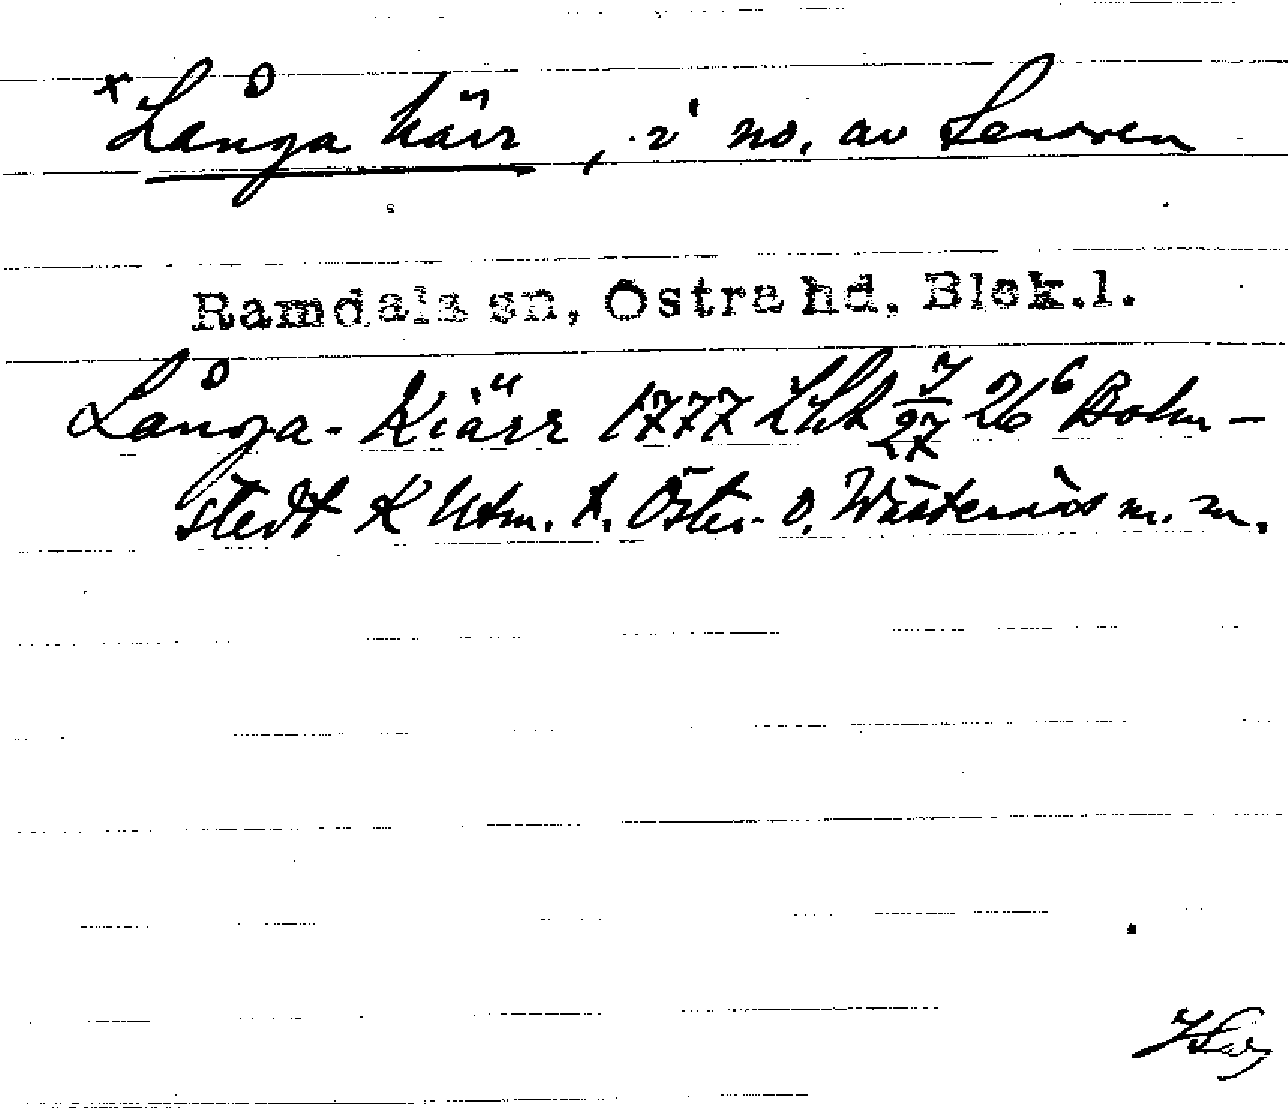 × Långa kärr, i no. av Senoren
Ramdala sn, Östra hd, Blek.l.
Långa-Kiärr 1777 LSA 7/27 26⁶ Bohn-
stedt K Utm. t. Öster- o. Wästernäs m. m.